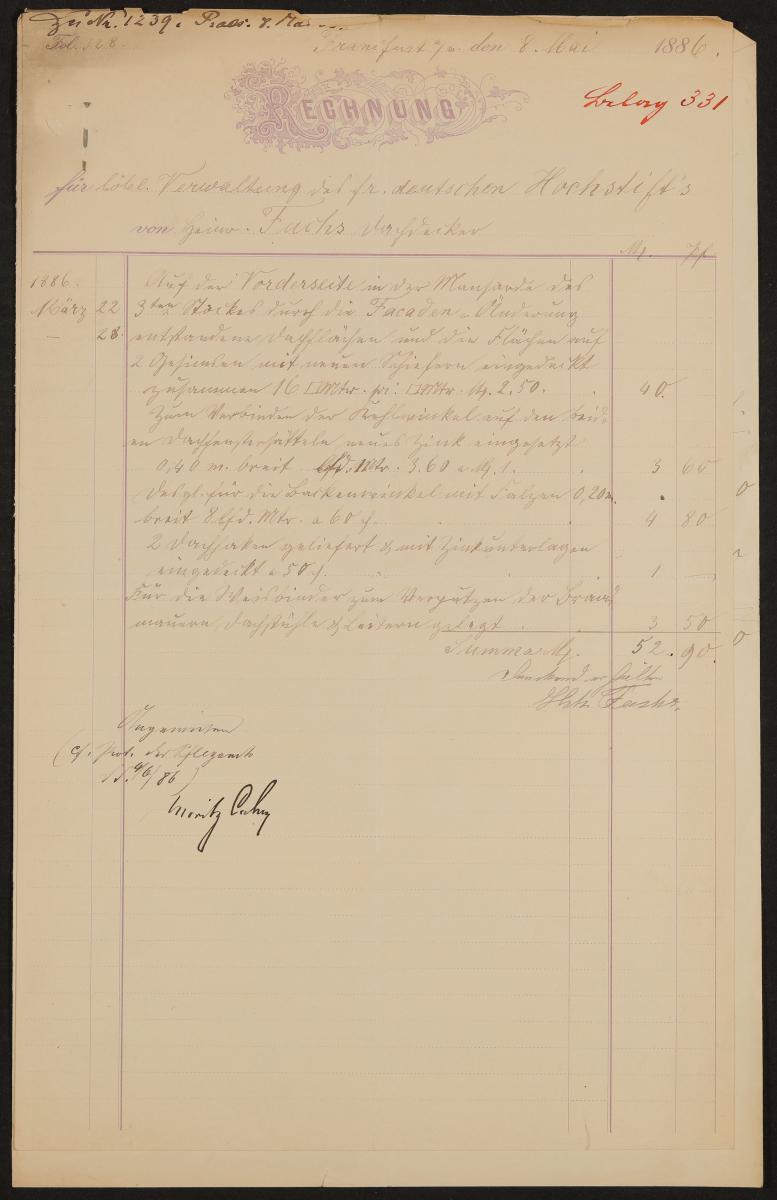 Zu Nr. 1239. Praes. 8. Mai
Fol. 128.
Frankfurt a/m. den 8. Mai 1886.
RECHNUNG
Beleg 331
für löbl. Verwaltung des fr. deutschen Hochstift's
von Heinr. Fuchs Dachdecker
M. Pf.
1886. Auf der Vorderseite in der Mansarde des
März 22 3ten Stockes durch die Facaden-Änderung
— 28. entstandene Dachflächen und die Flächen auf
2 Gesimsen mit neuen Schiefern eingedeckt
zusammen 16 □Mtr. pr: □Mtr. M. 2.50. 40.
Zum Verbinden der Kehlwinkel auf den beid-
en Dachfenstersätteln neues Zink eingesetzt
0,40 m. breit lfd. Mtr. 3.60 a M. 1. 3 60
Desgl. für die Backenwinkel mit Falzen 0,20m.
breit 8 lfd. Mtr. a 60 ₰. 4 80
2 Dachhaken geliefert & mit Zinkunterlagen
eingedeckt a 50 ₰. 1 —
Für die Weisbinder zum Verputzen der Brand
mauern, Dachstühle & Leitern gelegt 3 50
Summa M. 52. 90.
Dankend erhalten
Hch. Fuchs.
Angewiesen
(cf. Prot. des
d.d. 4/6/86)
Moritz